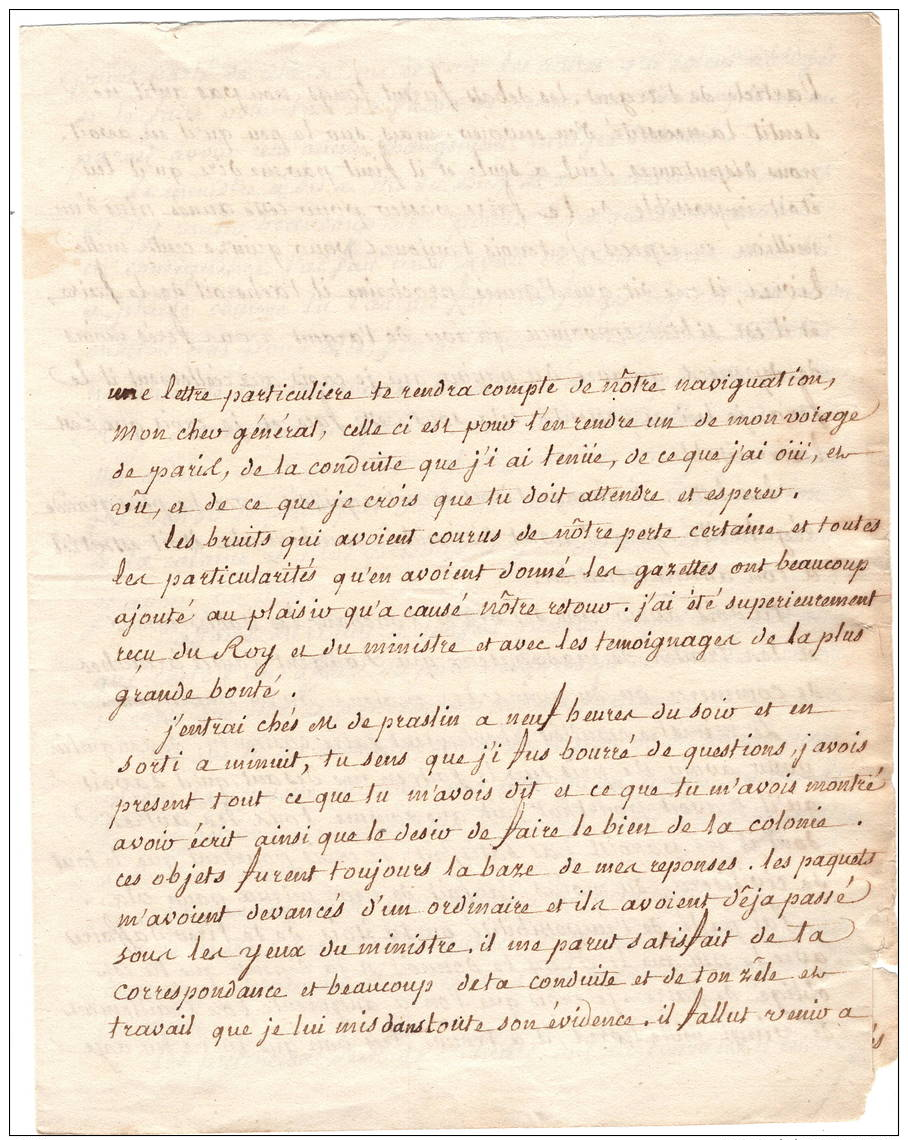 une lettre particuliere te rendra compte de nôtre naviguation,
Mon cher général, celle ci est pour t'en rendre un de mon voiage
de paris, de la conduite que j'i ai tenüe, de ce que j'ai oüi, et
vû, et de ce que je crois que tu doit attendre et esperer.
les bruits qui avoient courus de nôtre perte certaine et toutes
les particularités qu'en avoient donné les gazettes ont beaucoup
ajouté au plaisir qu'a causé nôtre retour. j'ai été superieurement
reçu du Roy et du ministre et avec les temoignages de la plus
grande bonté.
j'entrai chés M. de praslin a neuf heures du soir et en
sorti a minuit, tu sens que j'i fus bourré de questions, j'avois
present tout ce que tu m'avois dit et ce que tu m'avois montré
avoir écrit ainsi que le desir de faire le bien de la colonie.
ces objets furent toujours la baze de mes reponses. les paquets
m'avoient devancés d'un ordinaire et ils avoient dêja passé
sous les yeux du ministre. il me parut satisfait de ta
correspondance et beaucoup de ta conduite et de ton zêle et
travail que je lui mis dans toute son évidence. il fallut venir a